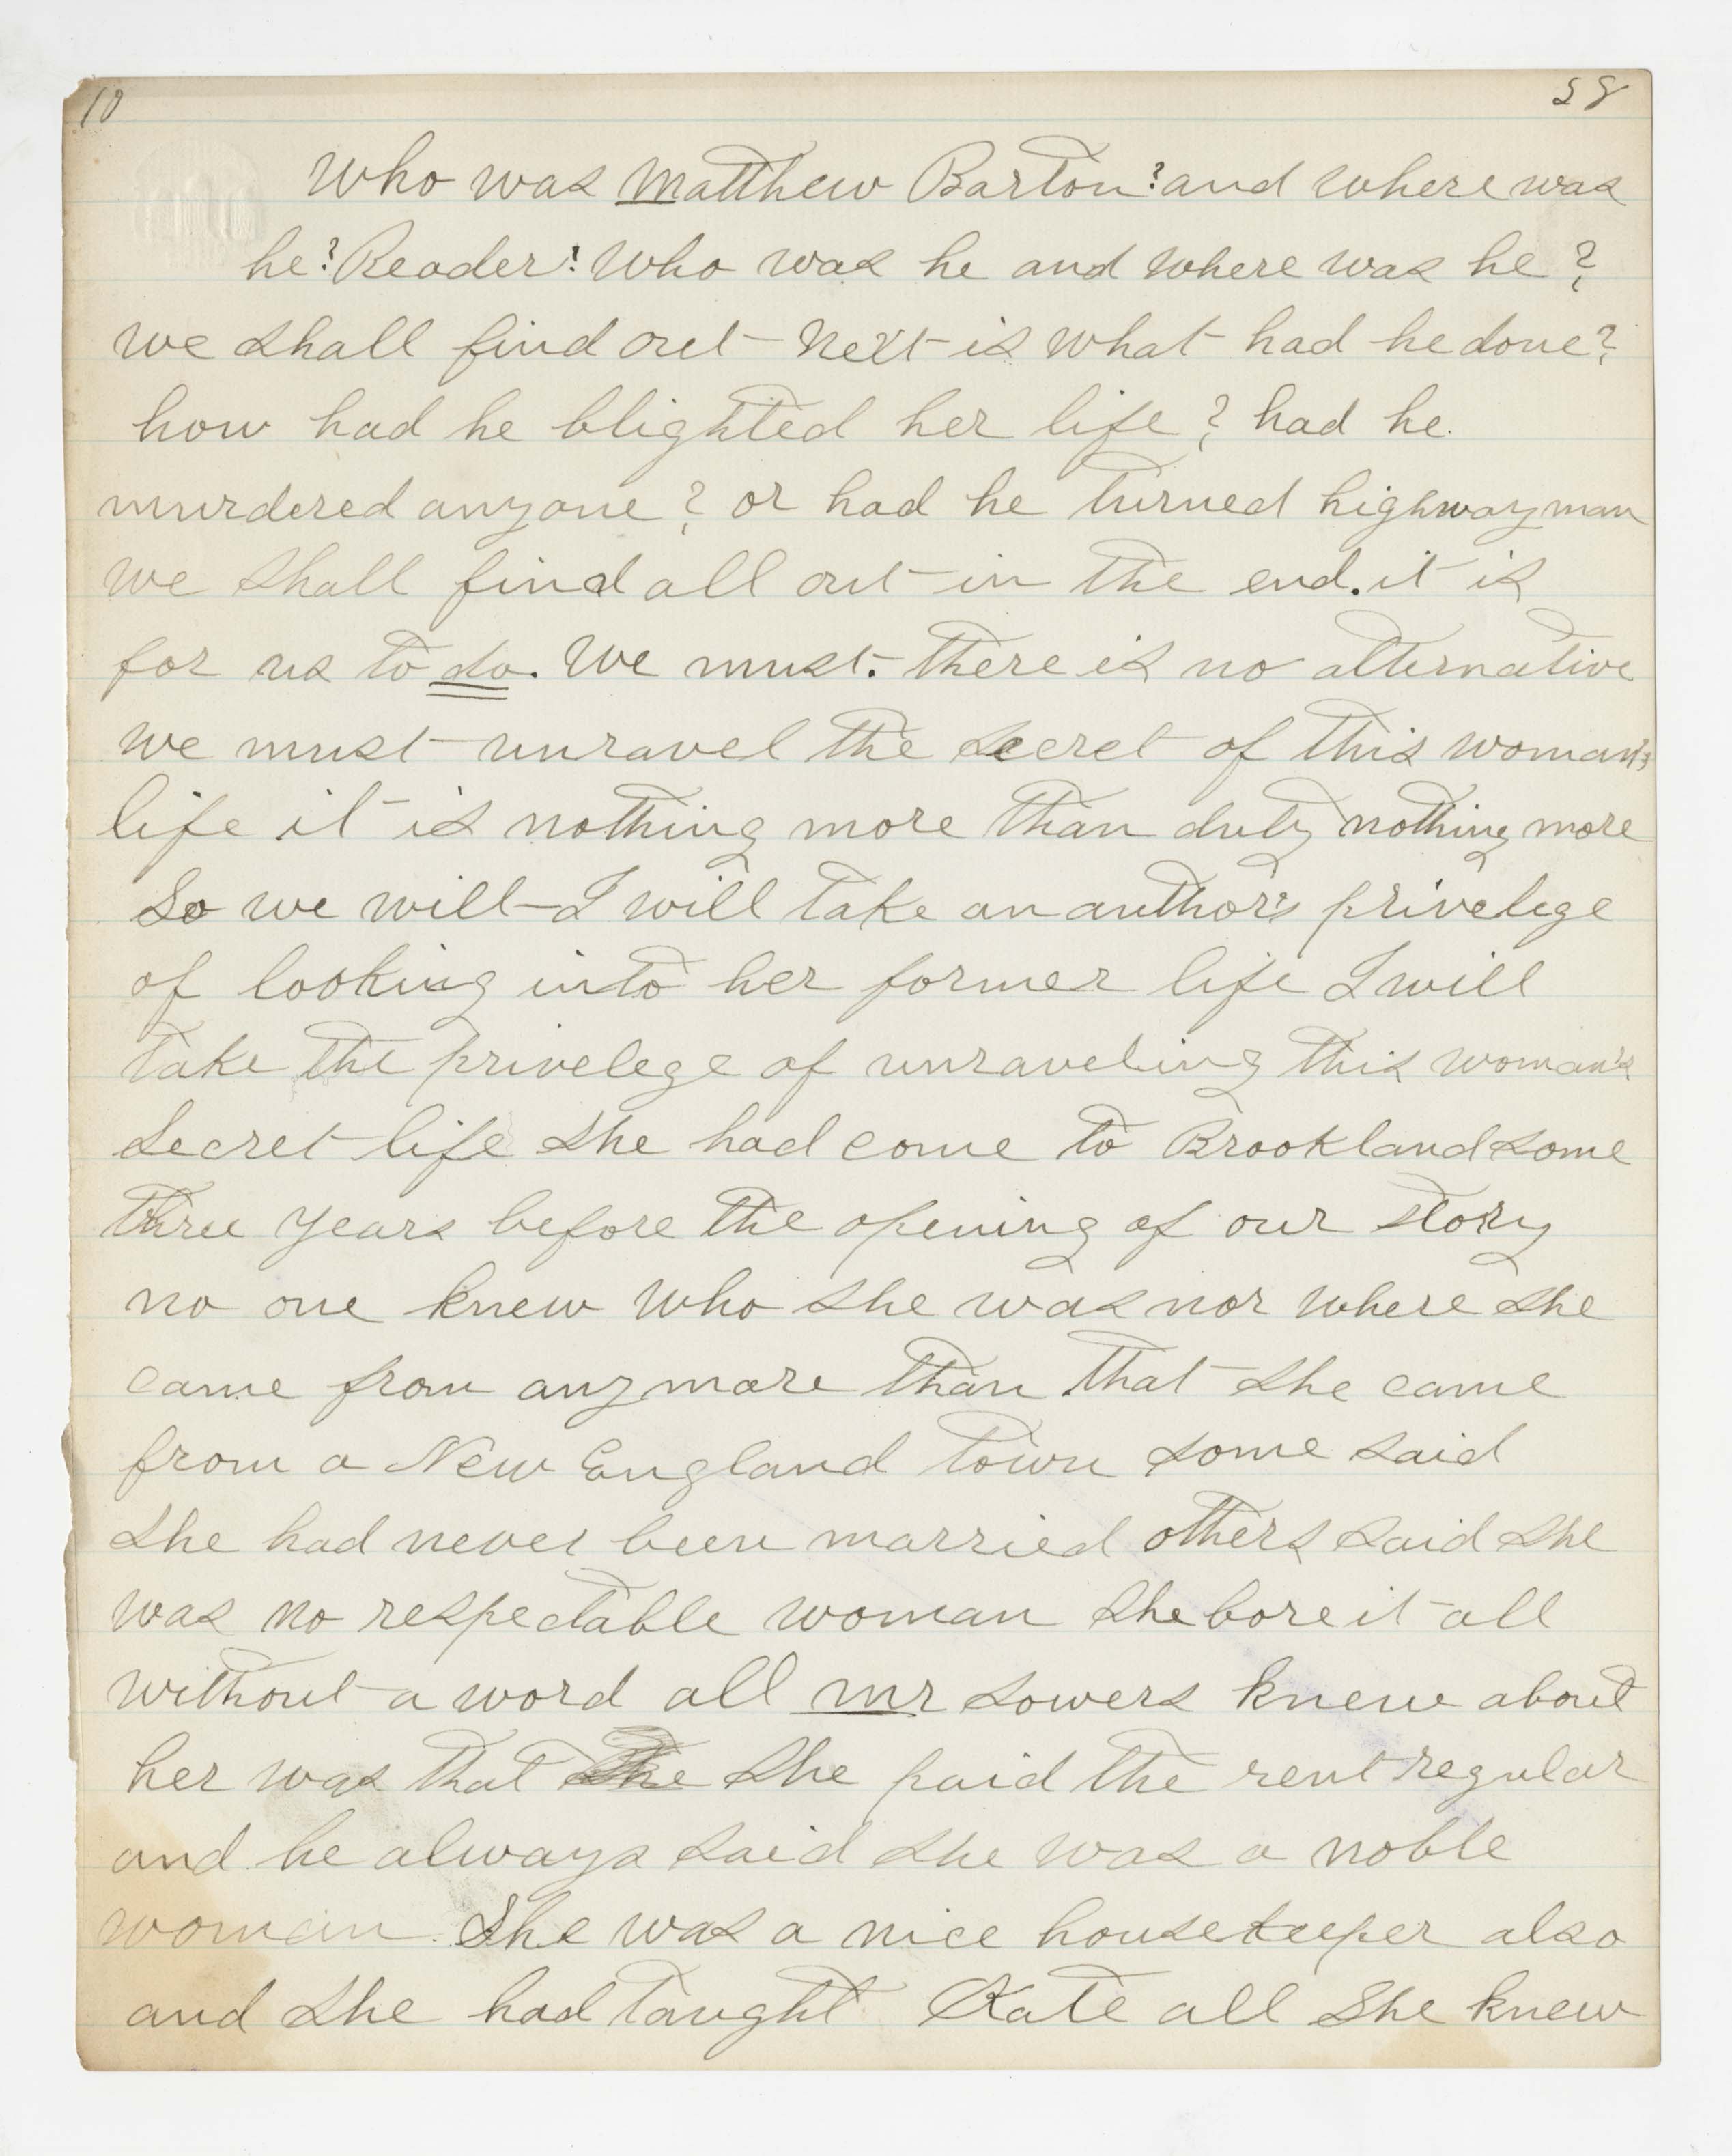 10 58
Who was Matthew Barton? and where was
he? Reader! Who was he and where was he?
we shall find out - Next is what had he done?
how had he blighted her life? had he
murdered anyone? or had he turned highwayman
we shall find all out in the end. it is
for us to do. We must. there is no alternative
we must unravel the secret of this woman's
life it is nothing more than duty nothing more
So we will - I will take an author's privelege
of looking into her former life I will
take the privelege of unraveling this woman's
Secret life She had come to Brookland some
three years before the opening of our story
no one knew who she was nor where she
came from any more than that she came
from a New England town some said
she had never been married others said she
was no respectable woman She bore it all
without a word all mr Sowers knew about
her was that She She paid the rent regular
and he always said she was a noble
woman. She was a nice housekeeper also
and she had taught Kate all She knew